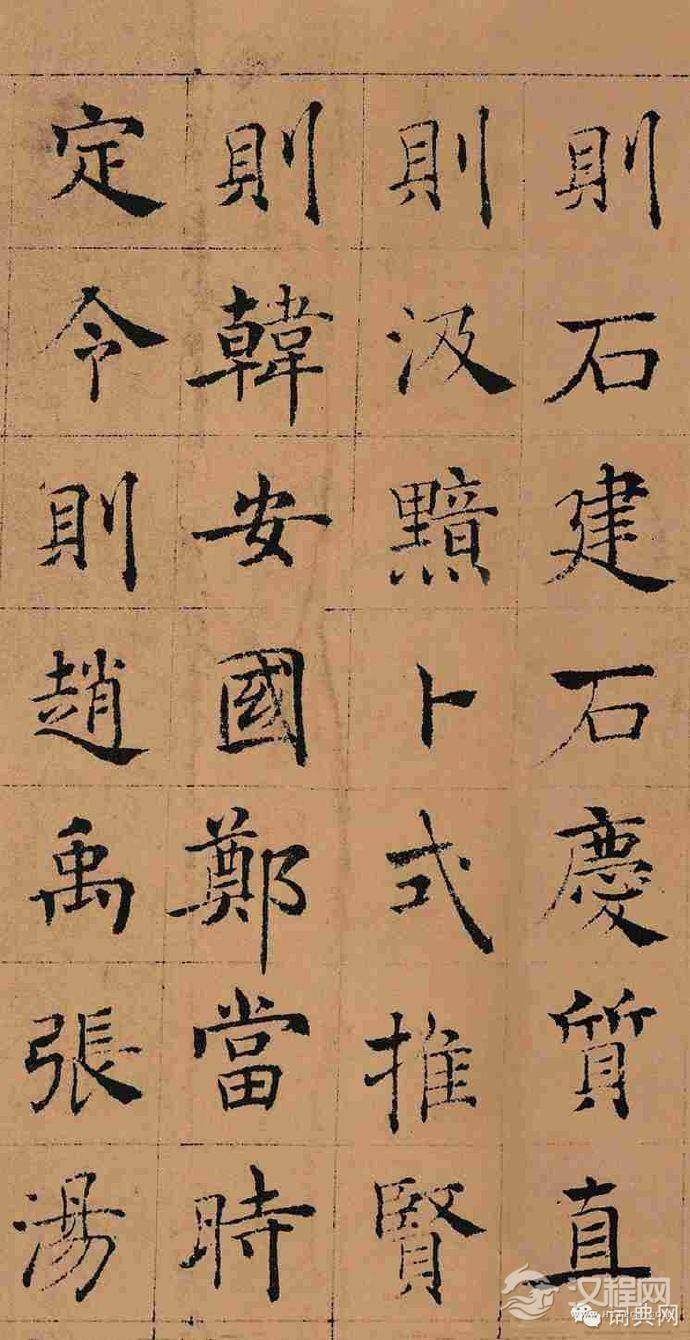 則石建石慶質直
則汲黯卜式推賢
則韓安國鄭當時
定令則趙禹張湯
汉程网
词典网